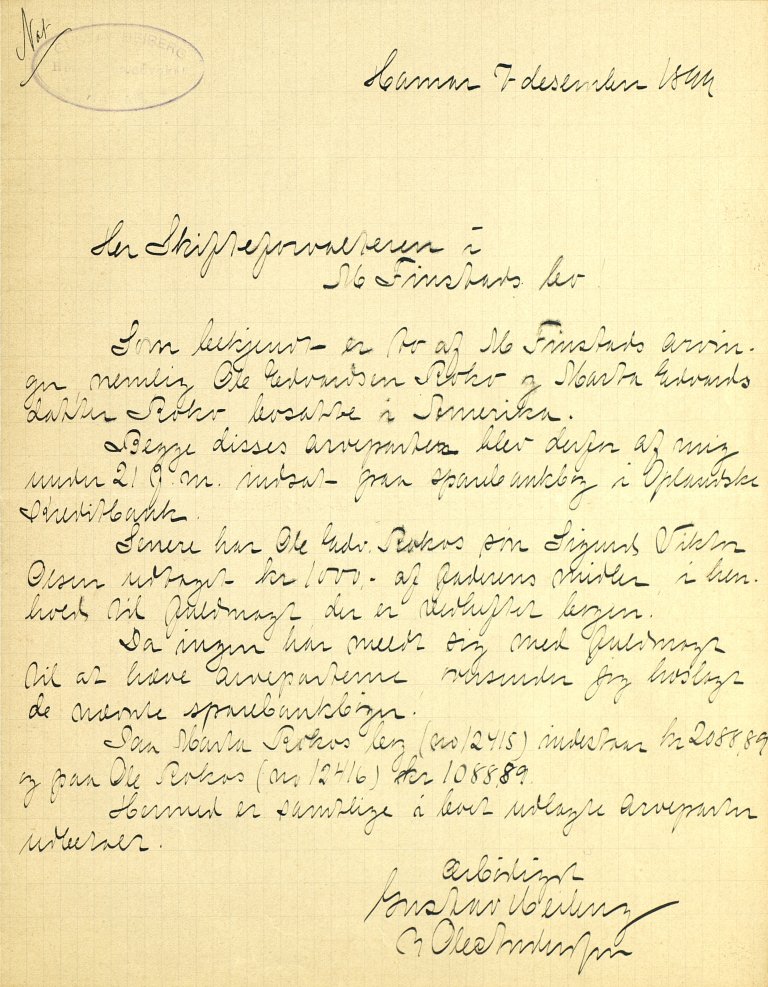 Not
Hamar 7 desember 1899
Herr Skifteforvalteren i
M Finstads bo!
Som bekjendt er to af M Finstads arvin-
ger nemlig Ole Edvardsen Roko og Marta Edvards
datter Roko bosatte i Amerika.
Begge disses arveparter blev derfor af mig
under 21 f. m. indsat paa sparebankbog i Oplandske
Kreditbank.
Senere har Ole Edv. Rokos søn Sigurd Viktor
Olsen udtaget kr 1000,- af faderens midler i hen-
hold til fuldmagt, der er vedheftet bogen.
Da ingen har meldt sig med fuldmagt
til at hæve arveparterne, oversender jeg hoslagt
de nævnte sparebankbøger.
Paa Marta Rokos bog (no 12415) indestaar kr 2088,89
og paa Ole Rokos (no 12416) kr 1088,89
Hermed er samtlige i boet udlagte arveparter
udbetalt.
Ærbødigst
Gustav Heiberg
Ole Andersen